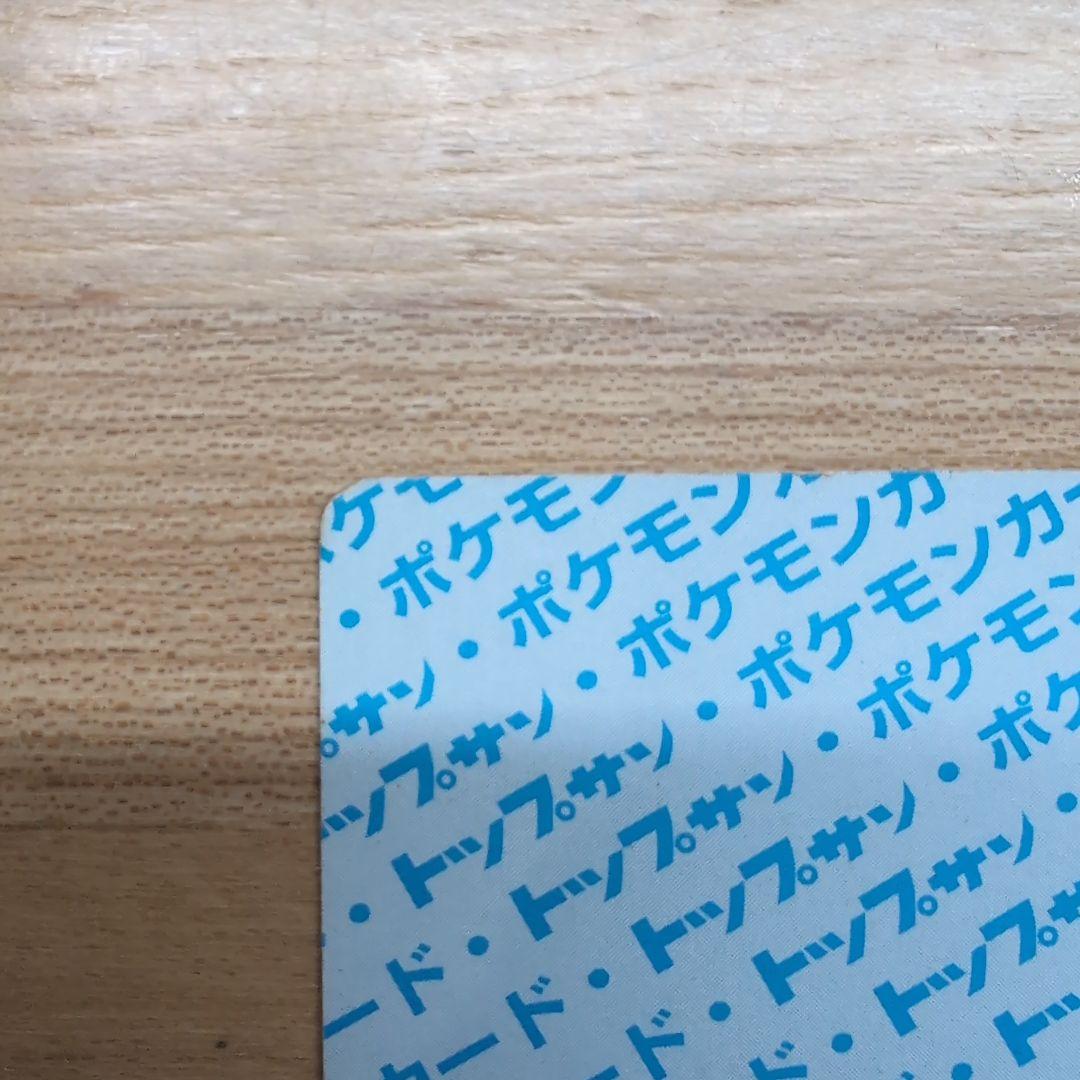 ケモ
・ポケモン
プサン・ポケモンカ
ップサン・ポケモンカ
・トップサン・ポケモンカー
ード・トップサン・ポケモン
カード・トップサン・ポケ
ード・トップサン・
ド・トップサ
・トッ